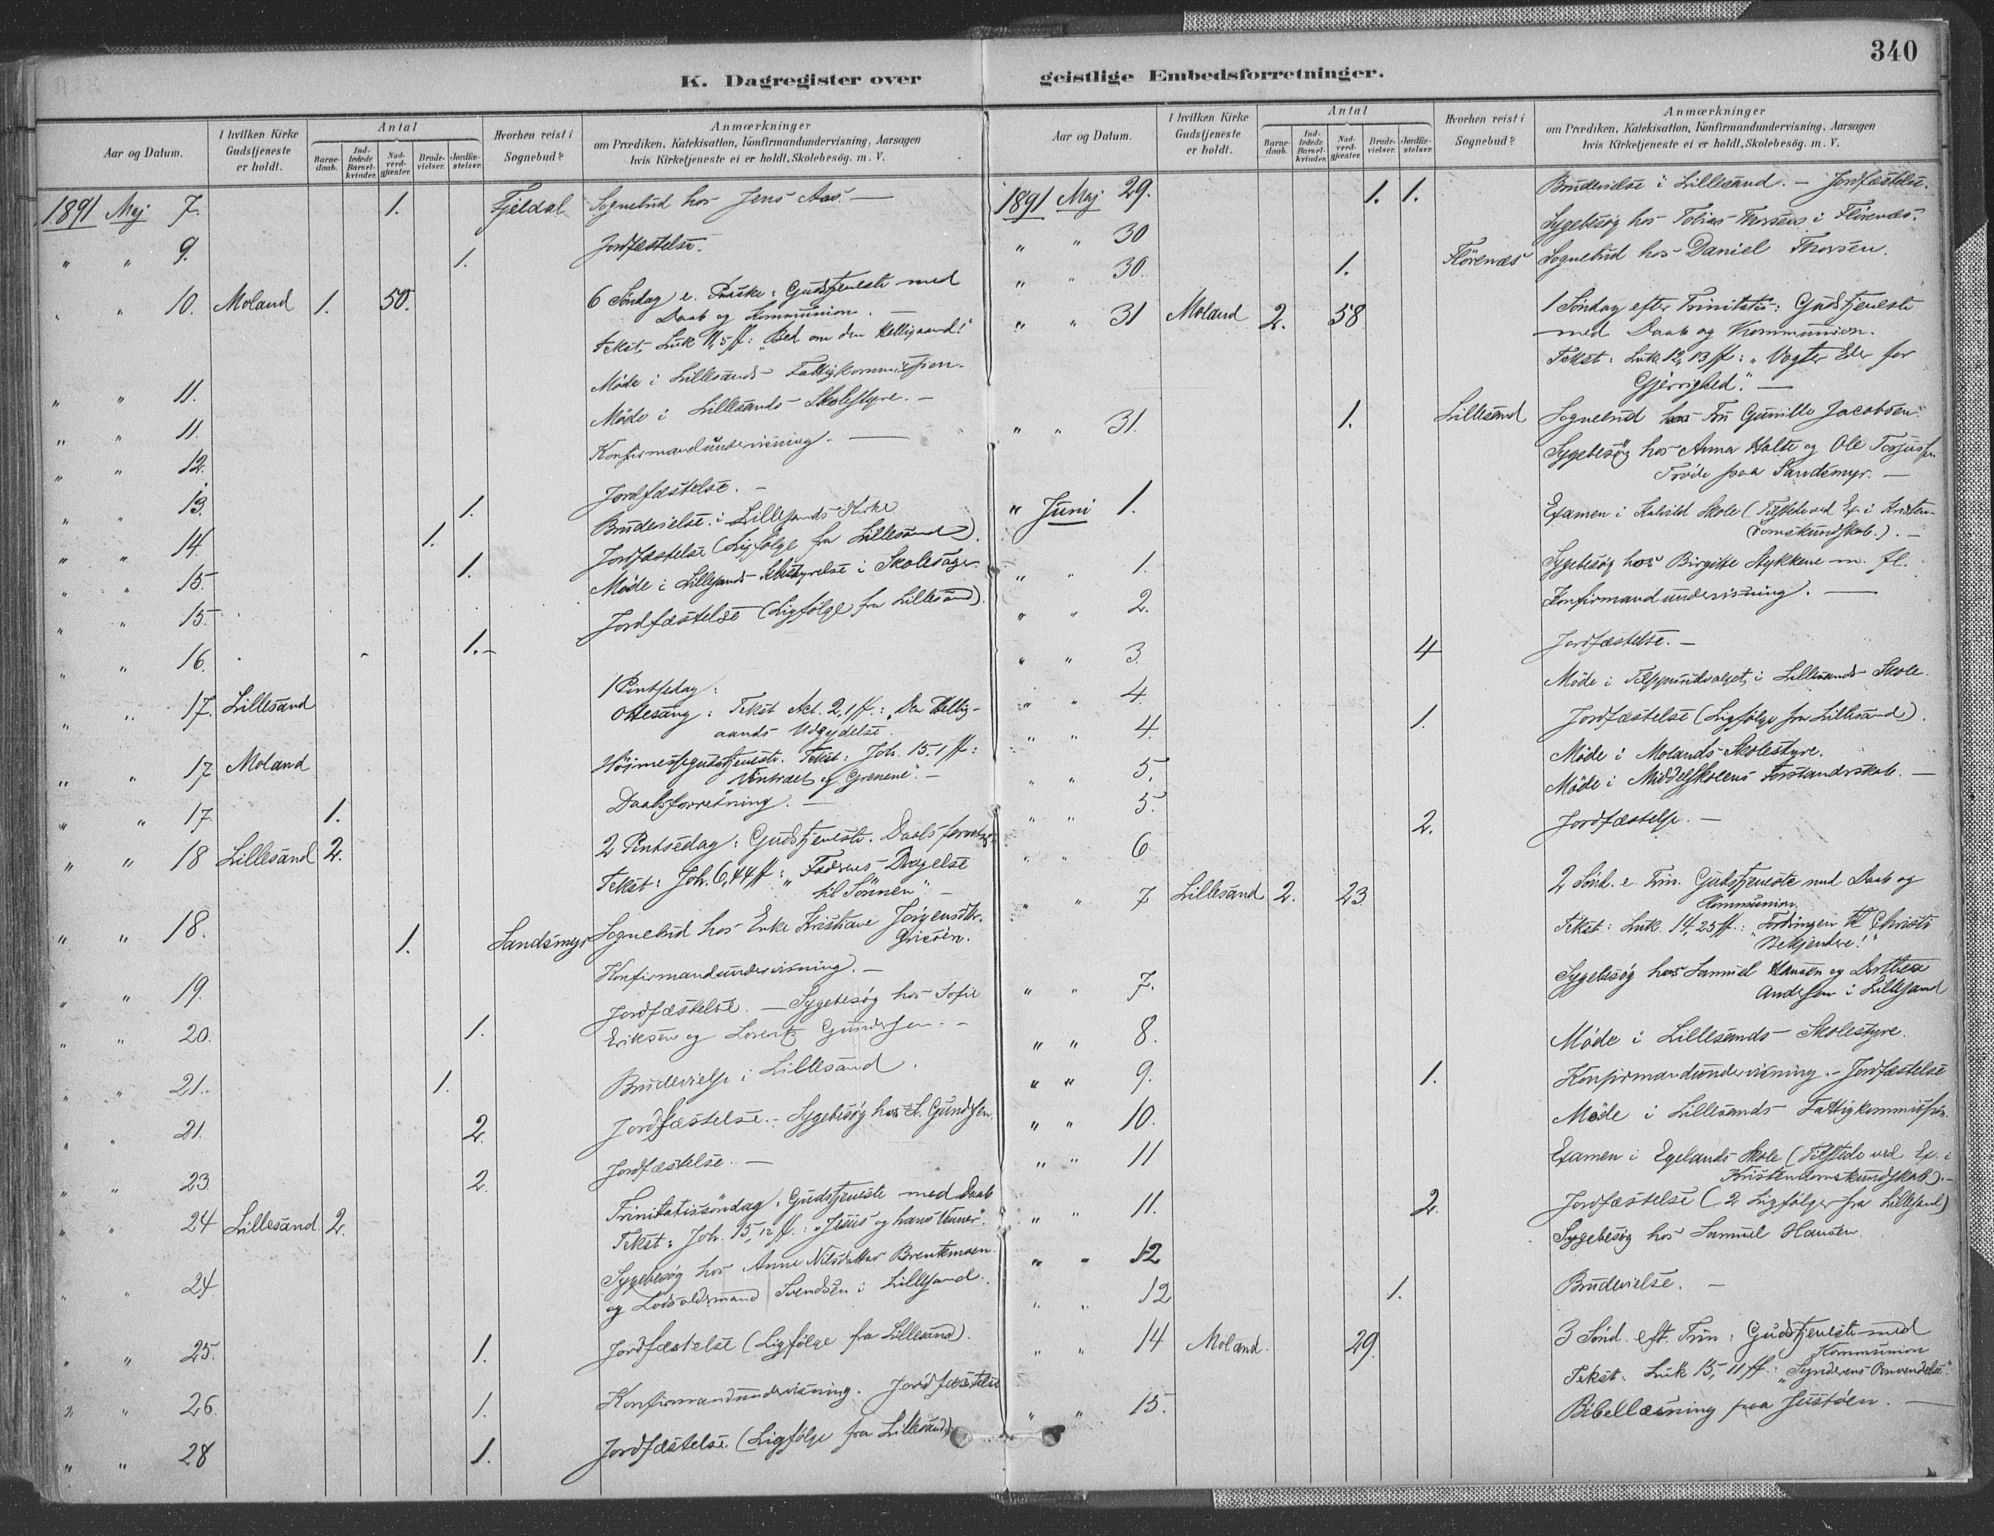 340
K. Dagregister over geistlige Embedsforretninger.
Aar og Datum.
I hvilken Kirke Gudstjeneste er holdt.
Antal
Barnedaab.
Indledede Barselkvinder.
Nadverdgjæster.
Brudevielser.
Jordfæstelser.
Hvorhen reist i Sognebud?
Anmærkninger
om Prædiken, Katekisation, Konfirmandundervisning, Aarsagen
hvis Kirketjeneste ei er holdt, Skolebesøg. m. V.
1891 Maj 7. 1. Fjeldal Sognebud hos Jens Aas. —
" " 9. 1. Jordfæstelse.
" " 10. Moland 1. 50. 6 Søndag e. Paaske: Gudstjeneste med
Daab og Kommunion. —
Tekst, Luk 11,5 ff: "Bed om den Helligaand!"
" " 11. Møde i Lillesands Fattigkommission.
" " 11. Møde i Lillesands Skolestyre. —
" " 12. Konfirmandundervisning. —
" " 13. 1. Jordfæstelse. —
" " 14. 1. Brudevielse i Lillesands Kirke
" " 15. 1. Jordfæstelse (Ligfølge fra Lillesand).
" " 15. Møde i Lillesands i Skolesager.
" " 16. 1. Jordfæstelse (Ligfølge fra Lillesand).
" " 17. Lillesand 1 Pintsedag:
Ottesang: Tekst Act. 2,1 ff.: "Den Hellig-
aands Udgydelse.
" " 17 Moland Høimessegudstjeneste. Tekst: Joh. 15.1 ff:
Vintræet og Grenene". —
" " 17 1. Daabsforretning. —
" " 18 Lillesand 2. 2 Pintsedag: Gudstjeneste. Daabsforretng.
Tekst: Joh. 6,44 ff: "Faderens Dragelse
til Sønnen". —
" " 18. 1. Sandsmyr Sognebud hos Enke Kristiane Jørgensdtr.
" " 19. Konfirmandundervisning. —
" " 20. 1. Jordfæstelse. — Sygebesøg hos Sofie
Eriksen og Lorentz Gundersen. —
" " 21. 1. Brudevielse i Lillesand.
" " 21. 2. Jordfæstelse. Sygebesøg hos L. Gundersen.
" " 23 2. Jordfæstelse. —
" " 24 Lillesand 2. Trinitatissøndag: Gudstjeneste med Daab
Tekst: Joh. 15,12 ff.: "Jesus og hans Venner".
" " 24 Sygebesøg hos Anne Nilsdatter Brentemoen
og Lodsoldermand Svendsen i Lillesand.
" " 25. 1. Jordfæstelse (Ligfølge fra Lillesand).
" " 26. 1. Konfirmandundervisning. Jordfæstelse
" " 28 1. Jordfæstelse (Ligfølge fra Lillesand).
Aar og Datum.
I hvilken Kirke Gudstjeneste er holdt.
Antal
Barnedaab.
Indledede Barselkvinder.
Nadverdgjæster.
Brudevielser.
Jordfæstelser.
Hvorhen reist i Sognebud?
Anmærkninger
om Prædiken, Katekisation, Konfirmandundervisning, Aarsagen
hvis Kirketjeneste ei er holdt, Skolebesøg. m. V.
1891 Maj 29. 1. 1. Brudevielse i Lillesand. — Jordfæstelse.
" " 30 Sygebesøg hos Tobias Thorsens i Flørenæs.
" " 30. 1. Flørenæs Sognebud hos Daniel Thorsen.
" " 31 Moland 2. 58 1 Søndag efter Trinitatis: Gudstjeneste
med Daab og Kommunion.
Tekst: Luk. 12,13 ff: "Vogter Eder for
Gjerrighed". —
" " 31. 1. Lillesand Sognebud hos Fru Gunille Jacobsen.
Sygebesøg hos Anna Holte og Ole Terjussen
Trøde paa Sandsmyr. —
" Juni 1. Examen i Skole (Tilstede ved Ex. i Kristen-
domskundskab). —
" " 1. Sygebesøg hos Birgitte Stykkene m. fl.
" " 2. Konfirmandundervisning. —
" " 3. 4 Jordfæstelse. —
" " 4. Møde i Tilsynsudvalget i Lillesands Skole
" " 4. 1. Jordfæstelse (Ligfølge fra Lillesand).
" " 5. Møde i Molands Skolestyre.
" " 5. Møde i Middelskolens Forstanderskab. —
" " 6 2. Jordfæstelse. —
" " 7 Lillesand 2. 23 2 Sønd. e. Trin. Gudstjeneste med Daab og
Kommunion.
Tekst: Luk. 14,25 ff.: "Fordringen til Christi
Bekjendere!"
" " 7. Sygebesøg hos Samuel Hansen og Dorthea
Andersen i Lillesand
" " 8. Møde i Lillesands Skolestyre.
" " 9. 1. Konfirmandundervisning. — Jordfæstelse
" " 10. Møde i Lillesands Fattigkommission.
" " 11 Examen i Egelands Skole (Tilstede ved Ex. i
Kristendomskundskab). —
" " 11. 2 Jordfæstelse (2 Ligfølger fra Lillesand)
" " 12 Sygebesøg hos Samuel Hansen.
" " 12 1. Brudevielse. —
" " 14 Moland. 29. 3 Sønd. eft. Trin: Gudstjeneste med
Kommunion
Tekst: Luk 15,11 ff.: "Synderens Omvendelse".
" " 15. Bibellæsning paa Justøen. —